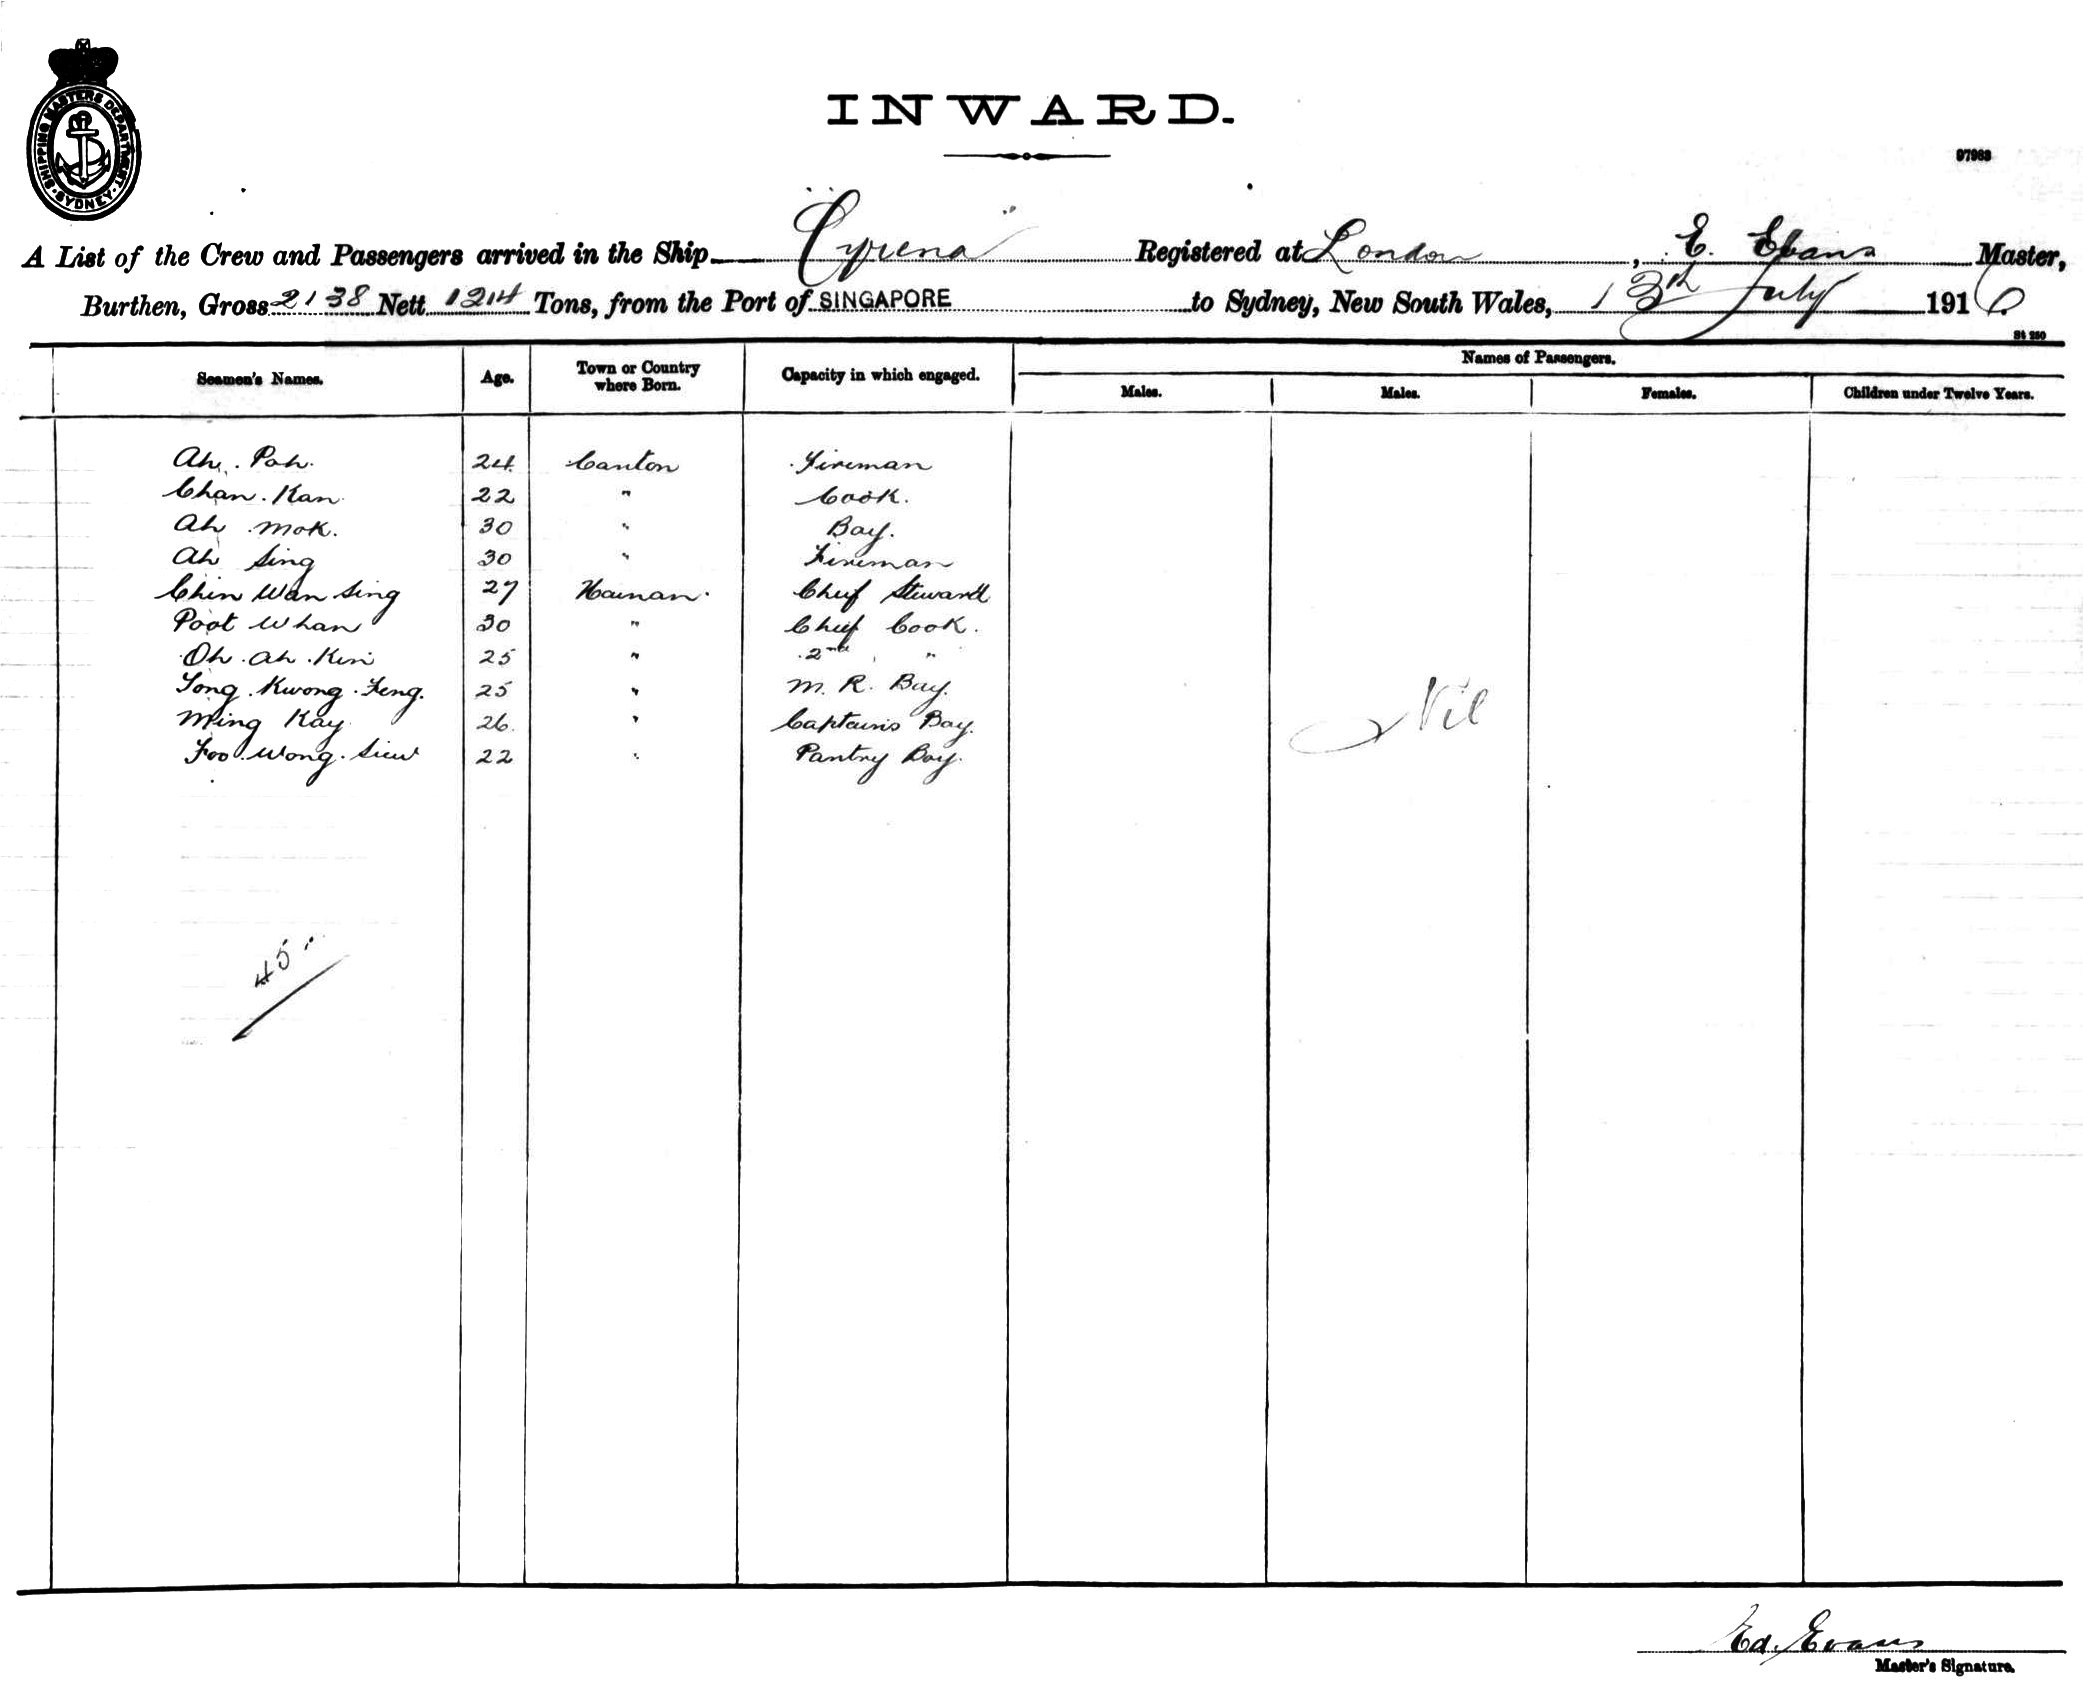 SHIPPING MASTERS DEPARTMENT. SYDNEY
INWARD.
97983
A List of the Crew and Passengers arrived in the Ship "Cyrena" Registered at London, E. Evans Master,
Burthen, Gross 2138 Nett 1214 Tons, from the Port of SINGAPORE to Sydney, New South Wales, 13th July 1916.
St 250
Seamen's Names. Age. Town or Country where Born. Capacity in which engaged. Names of Passengers.
Males. Males. Females. Children under Twelve Years.
Ah. Poh. 24 Canton Fireman
Chan. Kan 22 " Cook.
Ah Mok. 30 " Boy.
Ah Sing 30 " Fireman
Chin Wan Sing 27 Hainan. Chief Steward
Poot Whan 30 " Chief Cook.
Oh. Ah. Kin 25 " 2nd "
Tong. Kwong. Feng. 25 " M. R. Boy.
Ming Kay 26 " Captains Boy.
Foo. Wong. Siew 22 " Pantry Boy.
Nil
45
Ed. Evans
Master's Signature.